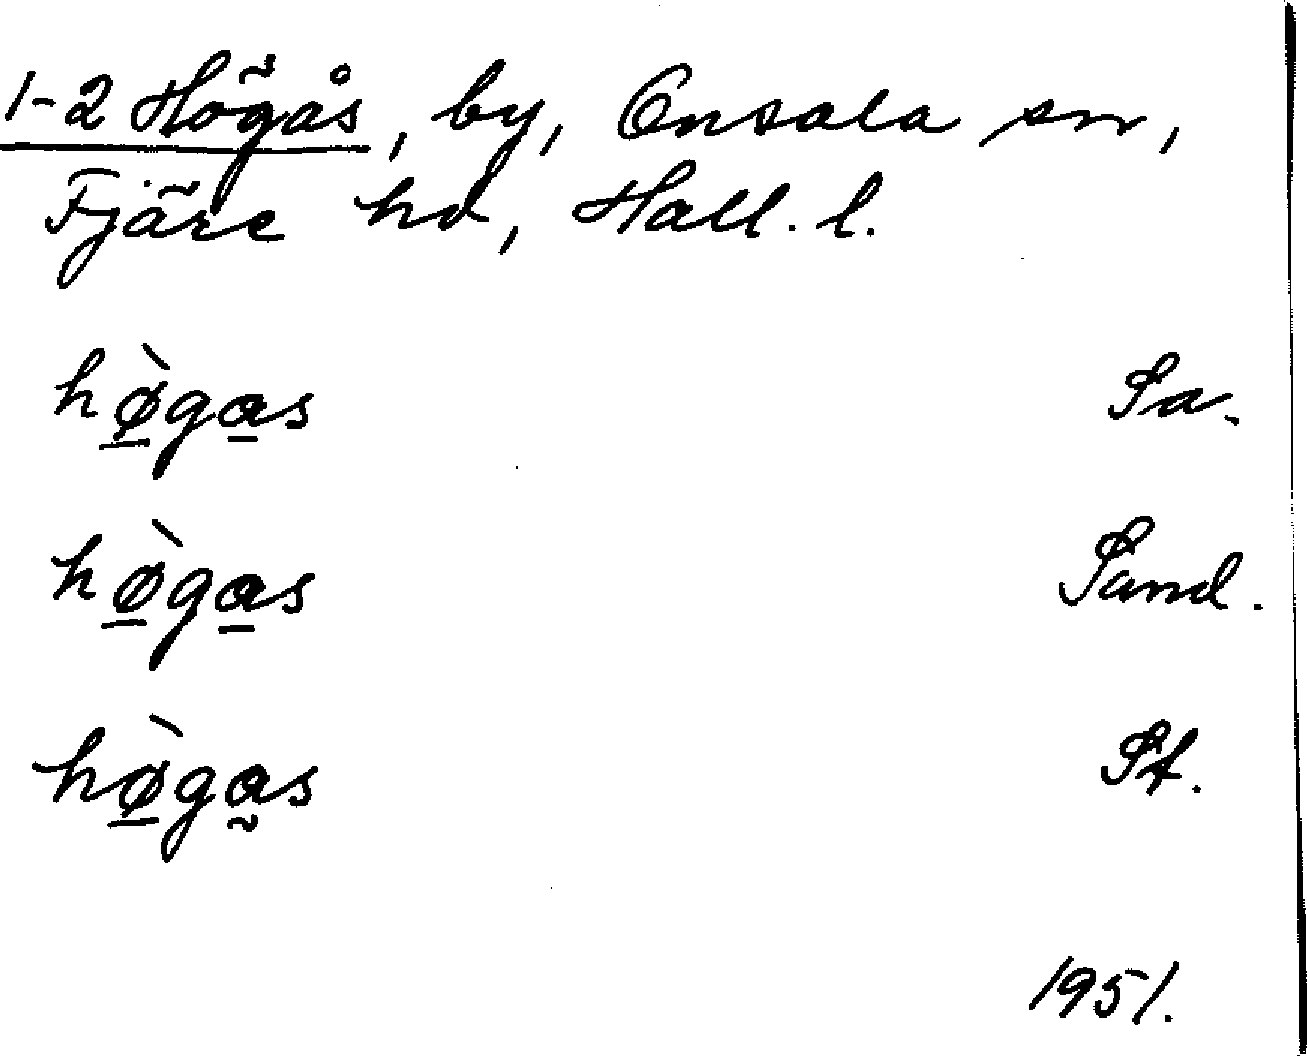 1-2 Högås, by, Onsala sn,
Fjäre hd, Hall. l.
hø̱̀ga̱s Sa.
hø̱̀ga̱s Sand.
hø̱̀ga̰s St.
1951.